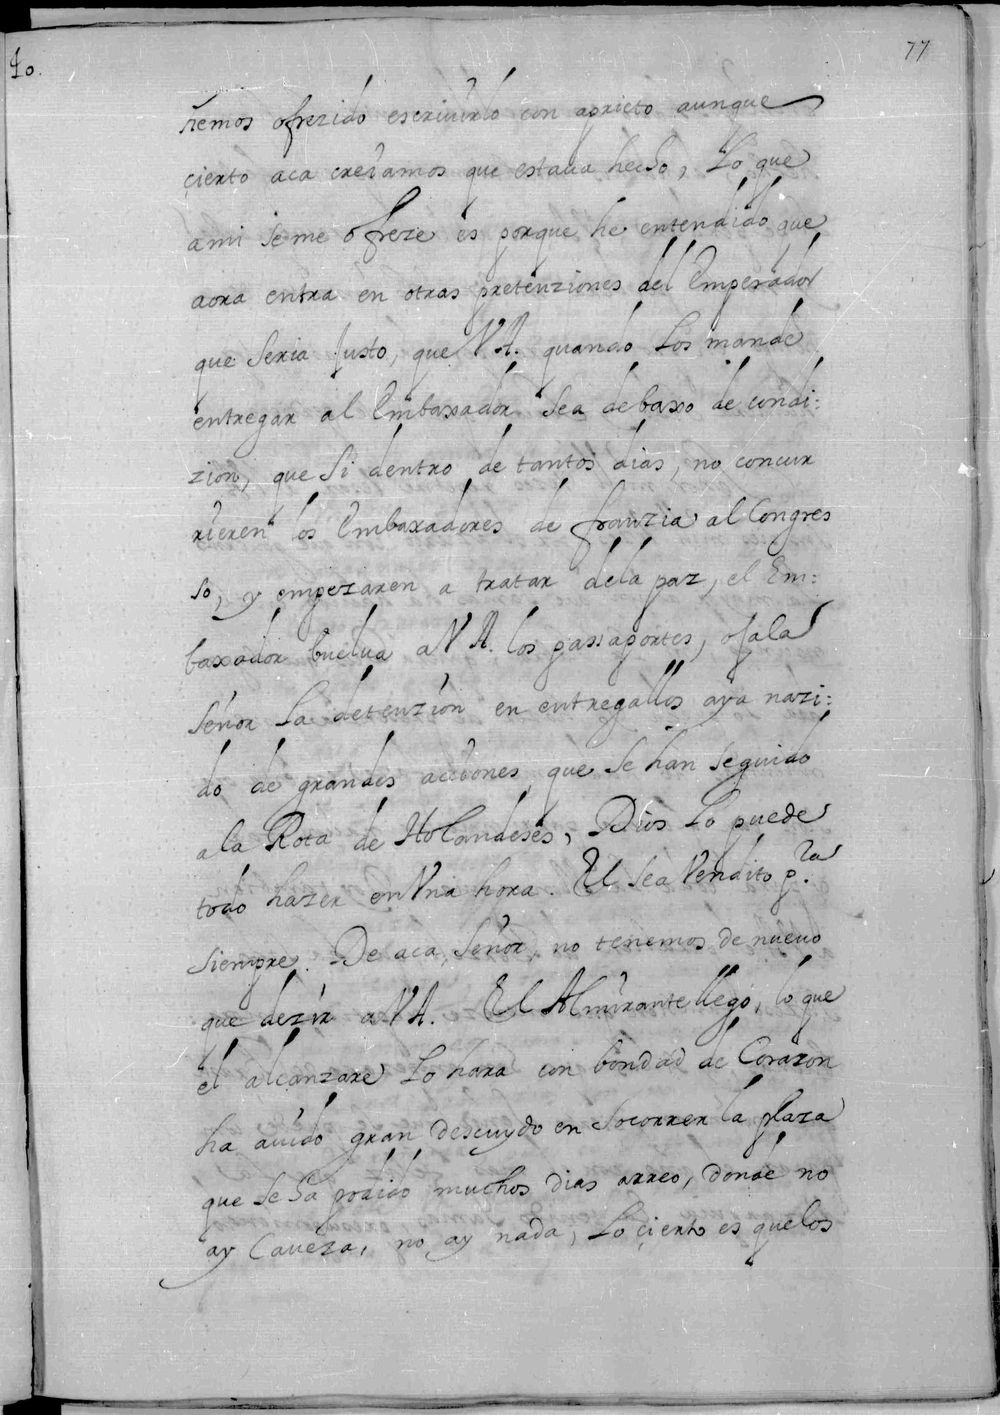 77
hemos ofrezido escrivirlo con aprieto aunque
çierto aca creiamos que estaua hecho, Lo que
ami seme ofreze es porque he entendido que
aora entra en otras pretenziones del Emperador
que seria Justo, que VA. quando Los mande
entregar al Embaxador sea debaxo de condi:
zion, que si dentro de tantos dias, no concur
rieren los Embaxadores de franzia al Congres
so, y empezaren a tratar dela paz, el Em:
baxador buelua a VA. los passaportes, ojala
señor La detenzion en entregallos aya nazi:
do de grandes acciones que se han seguido
a la Rota de Holandeses, Dios Lo puede
todo hazer en Vna hora. El sea Vendito p.ra
siempre. De aca, señor, no tenemos de nueuo
que dezir a VA. El Almirante llegó, lo que
el alcanzare Lo hara con bondad de Corazon
ha auido gran descuydo en socorrer la plaza
que se ha podido muchos dias arreo, donde no
ay Caueza, no ay nada, Lo çierto es que los